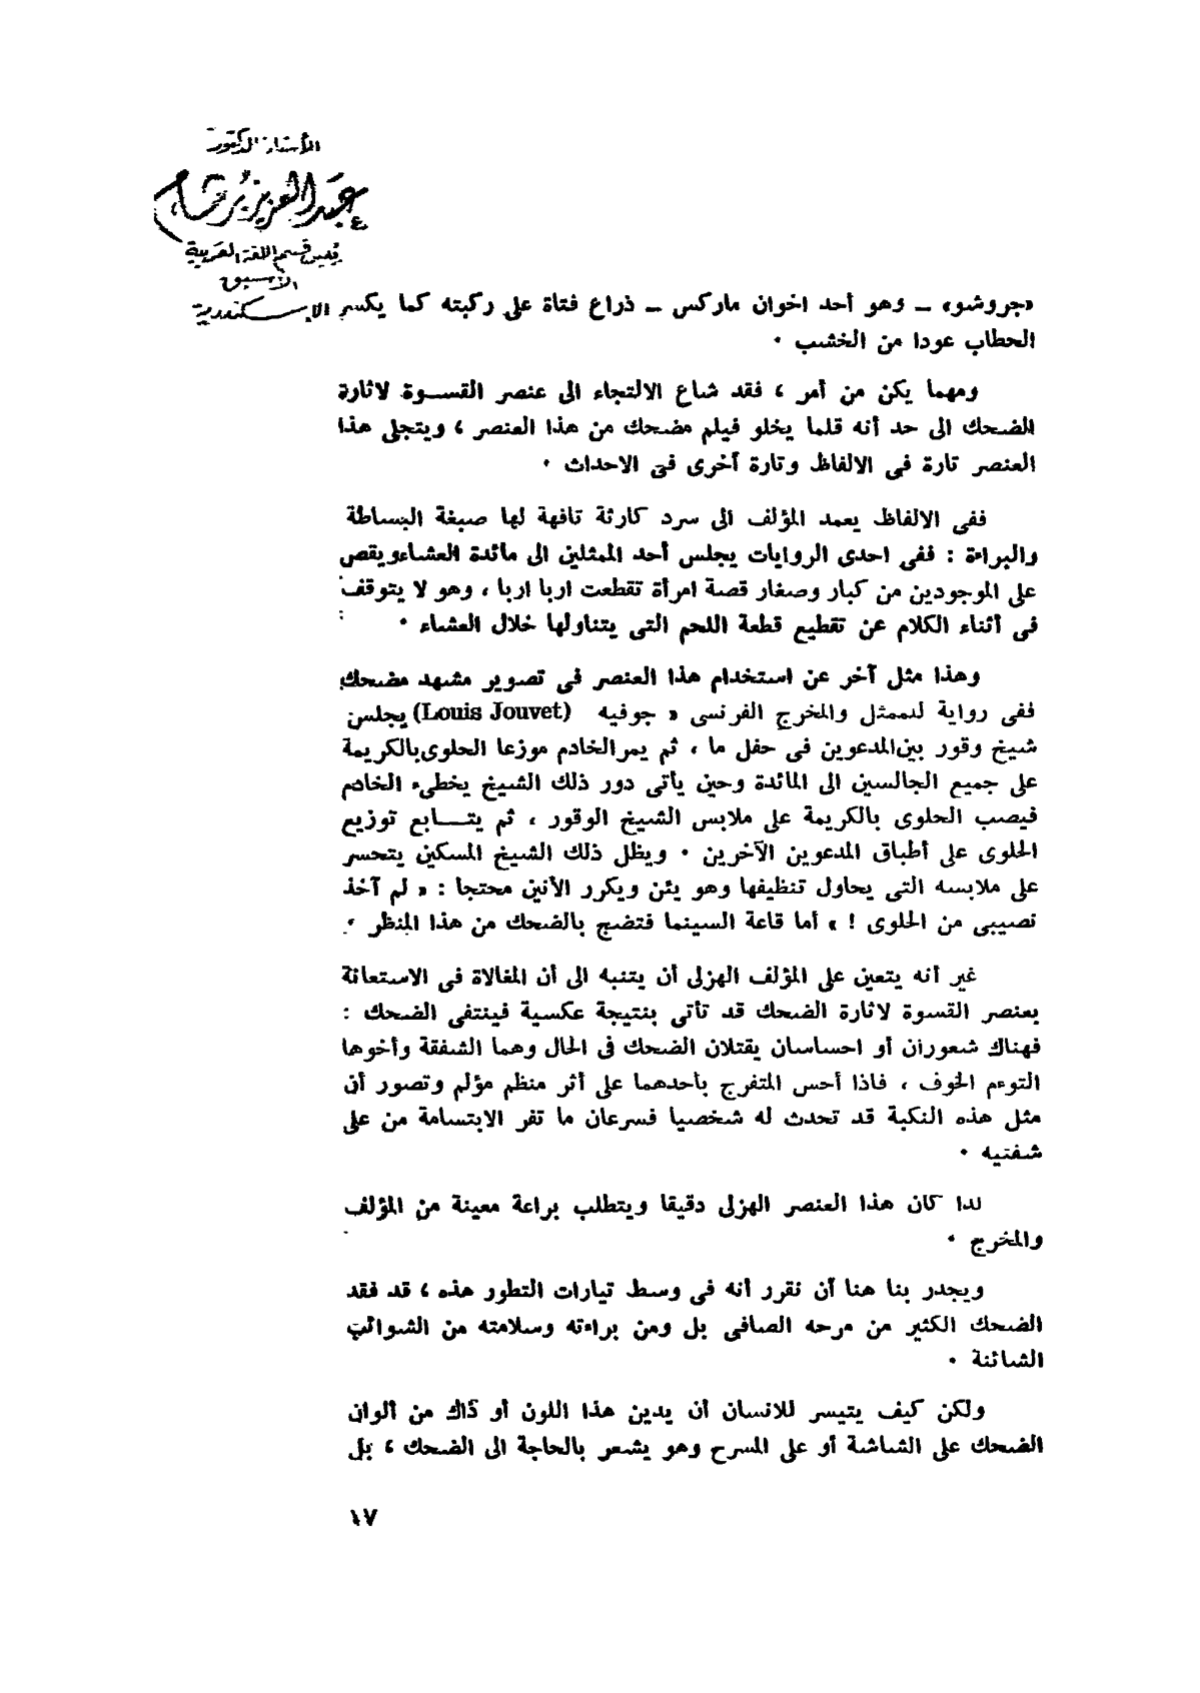 الأستاذ الدكتور
عبد العزيز برهام
رئيس قسم اللغة العربية
الأسبق
الإسكندرية
«جروشو» ــ وهو أحد اخوان ماركس ــ ذراع فتاة على ركبته كما يكسر
الحطاب عودا من الخشب ٠
ومهما يكن من أمر ، فقد شاع الالتجاء الى عنصر القســوة لاثارة
الضحك الى حد أنه قلما يخلو فيلم مضحك من هذا العنصر ، ويتجلى هذا
العنصر تارة فى الالفاظ وتارة أخرى فى الاحداث ٠
ففى الالفاظ يعمد المؤلف الى سرد كارثة تافهة لها صبغة البساطة
والبراءة : ففى احدى الروايات يجلس أحد الممثلين الى مائدة العشاءويقص
على الموجودين من كبار وصغار قصة امرأة تقطعت اربا اربا ، وهو لا يتوقف
فى أثناء الكلام عن تقطيع قطعة اللحم التى يتناولها خلال العشاء ٠
وهذا مثل آخر عن استخدام هذا العنصر فى تصوير مشهد مضحك
ففى رواية للممثل والمخرج الفرنسى « جوفيه (Louis Jouvet) يجلس
شيخ وقور بين‌المدعوين فى حفل ما ، ثم يمر‌الخادم موزعا الحلوى‌بالكريمة
على جميع الجالسين الى المائدة وحين يأتى دور ذلك الشيخ يخطىء الخادم
فيصب الحلوى بالكريمة على ملابس الشيخ الوقور ، ثم يتـــابع توزيع
الحلوى على أطباق المدعوين الآخرين ٠ ويظل ذلك الشيخ المسكين يتحسر
على ملابسه التى يحاول تنظيفها وهو يئن ويكرر الأنين محتجا : « لم آخذ
نصيبى من الحلوى ! » أما قاعة السينما فتضج بالضحك من هذا المنظر ٠
غير أنه يتعين على المؤلف الهزلى أن يتنبه الى أن المغالاة فى الاستعانة
بعنصر القسوة لاثارة الضحك قد تأتى بنتيجة عكسية فينتفى الضحك :
فهناك شعوران أو احساسان يقتلان الضحك فى الحال وهما الشفقة وأخوها
التوءم الخوف ، فاذا أحس المتفرج بأحدهما على أثر منظم مؤلم وتصور أن
مثل هذه النكبة قد تحدث له شخصيا فسرعان ما تفر الابتسامة من على
شفتيه ٠
لذا كان هذا العنصر الهزلى دقيقا ويتطلب براعة معينة من المؤلف
والمخرج ٠
ويجدر بنا هنا أن نقرر أنه فى وسط تيارات التطور هذه ، قد فقد
الضحك الكثير من مرحه الصافى بل ومن براءته وسلامته من الشوائب
الشائنة ٠
ولكن كيف يتيسر للانسان أن يدين هذا اللون أو ذاك من ألوان
الضحك على الشاشة أو على المسرح وهو يشعر بالحاجة الى الضحك ، بل
١٧